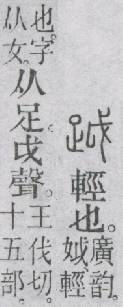 䟠輕也。廣韵。𡛟輕
也。字从女。从足。戉聲。王伐切。十五部。